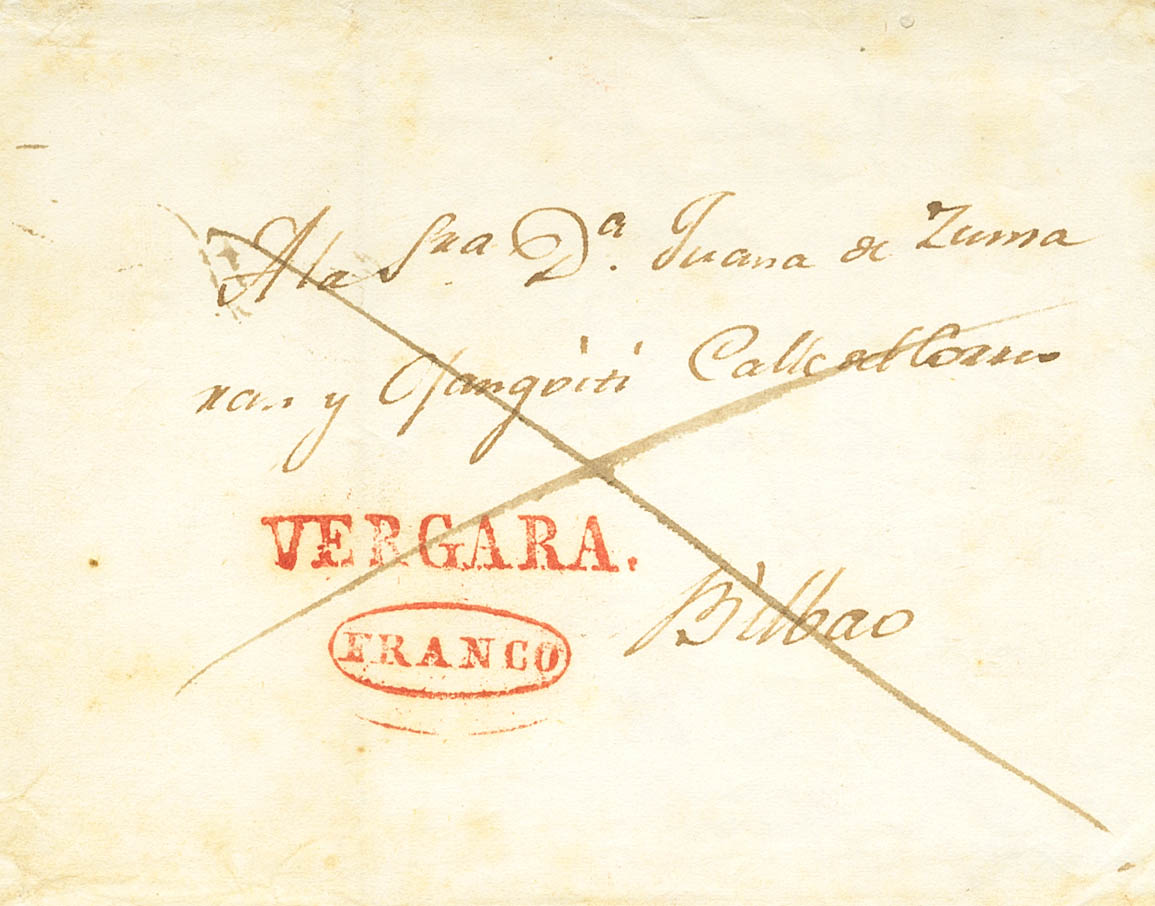 A la Sra Dª. Juana de Zuma
ran y Ojanguiti Calle del Correo
VERGARA.
FRANCO
Bilbao